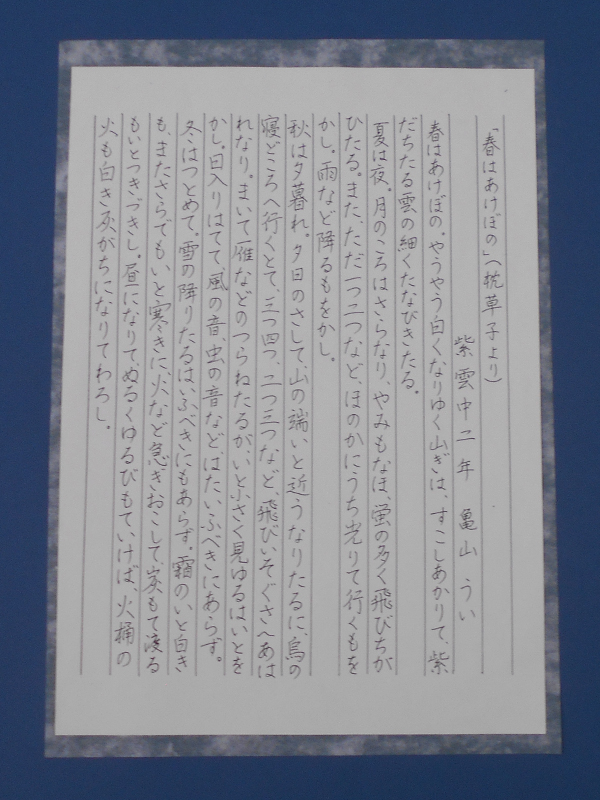 「春はあけぼの」(枕草子より)
紫雲中二年 亀山うい
春はあけぼの。やうやう白くなりゆく山ぎは、すこしあかりて、紫
だちたる雲の細くたなびきたる。
夏は夜。月のころはさらなり、やみもなほ、蛍の多く飛びちが
ひたる。また、ただ一つ二つなど、ほのかにうち光りて行くもを
かし。雨など降るもをかし。
秋は夕暮れ。夕日のさして、山の端いと近うなりたるに、烏の
寝どころへ行くとて、三つ四つ、二つ三つなど、飛びいそぐさへあは
れなり。まいて雁などのつらねたるが、いと小さく見ゆるはいとを
かし。日入りはてて、風の音、虫の音など、はたいふべきにあらず。
冬はつとめて。雪の降りたるはいふべきにもあらず。霜のいと白き
も、またさらでもいと寒きに、火など急ぎおこして、炭もて渡る
もいとつきづきし。昼になりてぬるくゆるびもていけば、火桶の
火も白き灰がちになりてわろし。